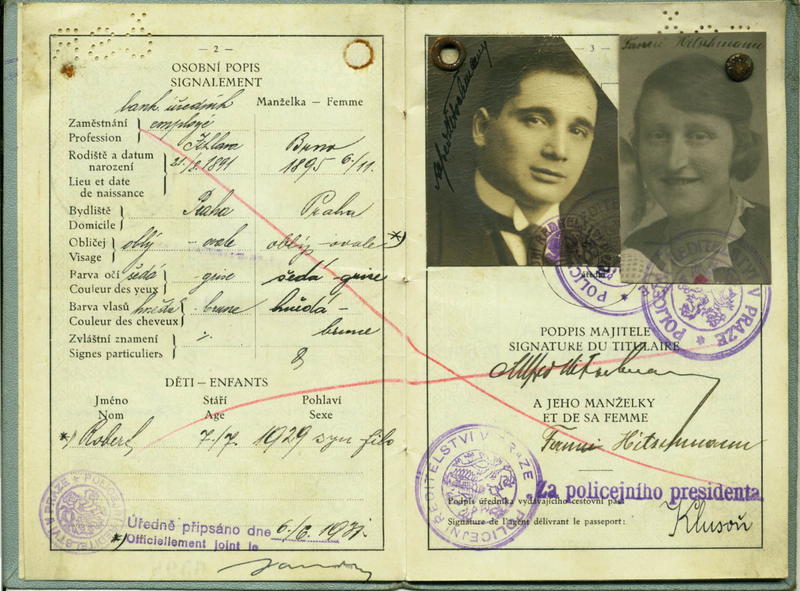 — 2 —
OSOBNÍ POPIS
SIGNALEMENT
Manželka – Femme
bank. úředník
Zaměstnání employé
Profession
Rodiště a datum narození Brno
21. 1891 1895 6/11.
Lieu et date de naissance
Bydliště Praha Praha
Domicile
Obličej oblý – ovale oblý – ovale *)
Visage
Parva očí šedá – grise šedá – grise
Couleur des yeux
Barva vlasů hnědá – brune hnědá – brune
Couleur des cheveux
Zvláštní znamení
Signes particuliers
DĚTI – ENFANTS
Jméno Stáří Pohlaví
Nom Age Sexe
*) Robert 7./7. 1929 syn filo
POLICEJNÍ ŘEDITELSTVÍ V PRAZE
Úředně připsáno dne
*) Officiellement joint le
— 3 —
Fanni Hitschmann
POLICEJNÍ ŘEDITELSTVÍ V PRAZE
POLICEJNÍ ŘEDITELSTVÍ V PRAZE
PODPIS MAJITELE
SIGNATURE DU TITULAIRE
Alfred Hitschmann
A JEHO MANŽELKY
ET DE SA FEMME
Fanni Hitschmann
POLICEJNÍ ŘEDITELSTVÍ V PRAZE
Za policejního presidenta
Podpis úředníka vydávajícího cestovní pas
Signature de l'agent délivrant le passeport: Klusoň